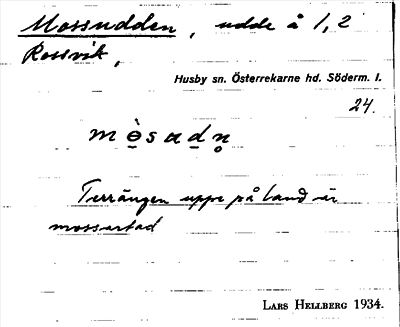 Mossudden, udde å 1,2
Rossvik,
Husby sn. Österrekarne hd. Söderm. l.
24.
mòsadn̥
Terrängen uppe på land är
mossartad
LARS HELLBERG 1934.